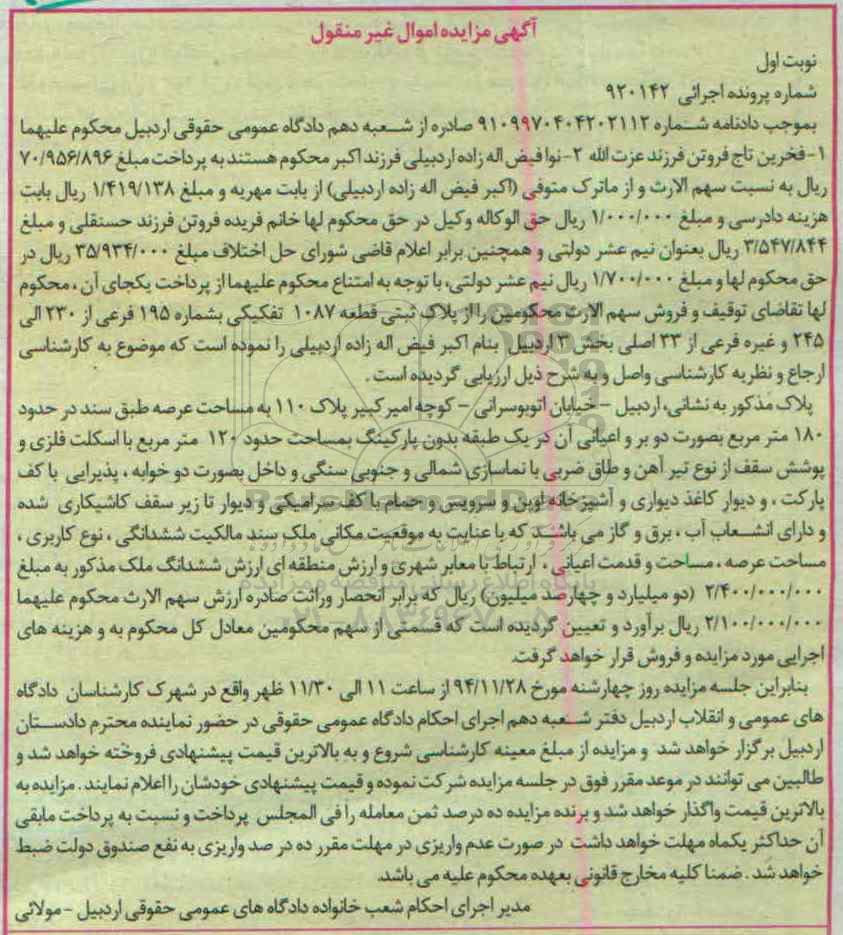 آگهی مزایده اموال غیر منقول
نوبت اول
شماره پرونده اجرائی ۹۲۰۱۴۲
بموجب دادنامه شماره ۹۱۰۹۹۷۰۴۰۴۲۰۲۱۱۲ صادره از شعبه دهم دادگاه عمومی حقوقی اردبیل محکوم علیهما
۱-فخرین تاج فروتن فرزند عزت الله ۲-نوا فیض اله زاده اردبیلی فرزند اکبر محکوم هستند به پرداخت مبلغ ۷۰/۹۵۶/۸۹۶
ریال به نسبت سهم الارث و از ماترک متوفی (اکبر فیض اله زاده اردبیلی) از بابت مهریه و مبلغ ۱/۴۱۹/۱۳۸ ریال بابت
هزینه دادرسی و مبلغ ۱/۰۰۰/۰۰۰ ریال حق الوکاله وکیل در حق محکوم لها خانم فریده فروتن فرزند حسنقلی و مبلغ
۳/۵۴۷/۸۴۴ ریال بعنوان نیم عشر دولتی و همچنین برابر اعلام قاضی شورای حل اختلاف مبلغ ۳۵/۹۳۴/۰۰۰ ریال در
حق محکوم لها و مبلغ ۱/۷۰۰/۰۰۰ ریال نیم عشر دولتی، با توجه به امتناع محکوم علیهما از پرداخت یکجای آن ، محکوم
لها تقاضای توقیف و فروش سهم الارث محکومین را از پلاک ثبتی قطعه ۱۰۸۷ تفکیکی بشماره ۱۹۵ فرعی از ۲۳۰ الی
۲۴۵ و غیره فرعی از ۳۳ اصلی بخش ۳ اردبیل بنام اکبر فیض اله زاده اردبیلی را نموده است که موضوع به کارشناسی
ارجاع و نظریه کارشناسی واصل و به شرح ذیل ارزیابی گردیده است .
پلاک مذکور به نشانی، اردبیل – خیابان اتوبوسرانی – کوچه امیرکبیر پلاک ۱۱۰ به مساحت عرصه طبق سند در حدود
۱۸۰ متر مربع بصورت دو بر و اعیانی آن در یک طبقه بدون پارکینگ بمساحت حدود ۱۲۰ متر مربع با اسکلت فلزی و
پوشش سقف از نوع تیر آهن و طاق ضربی با نماسازی شمالی و جنوبی سنگی و داخل بصورت دو خوابه ، پذیرایی با کف
پارکت ، و دیوار کاغذ دیواری و آشپزخانه اوپن و سرویس و حمام با کف سرامیکی و دیوار تا زیر سقف کاشیکاری شده
و دارای انشعاب آب ، برق و گاز می باشند که با عنایت به موقعیت مکانی ملک سند مالکیت ششدانگی ، نوع کاربری ،
مساحت عرصه ، مساحت و قدمت اعیانی ، ارتباط با معابر شهری و ارزش منطقه ای ارزش ششدانگ ملک مذکور به مبلغ
۲/۴۰۰/۰۰۰/۰۰۰ (دو میلیارد و چهارصد میلیون) ریال که برابر انحصار وراثت صادره ارزش سهم الارث محکوم علیهما
۲/۱۰۰/۰۰۰/۰۰۰ ریال برآورد و تعیین گردیده است که قسمتی از سهم محکومین معادل کل محکوم به و هزینه های
اجرایی مورد مزایده و فروش قرار خواهد گرفت.
بنابراین جلسه مزایده روز چهارشنه مورخ ۹۴/۱۱/۲۸ از ساعت ۱۱ الی ۱۱/۳۰ ظهر واقع در شهرک کارشناسان دادگاه
های عمومی و انقلاب اردبیل دفتر شعبه دهم اجرای احکام دادگاه عمومی حقوقی در حضور نماینده محترم دادستان
اردبیل برگزار خواهد شد و مزایده از مبلغ معینه کارشناسی شروع و به بالاترین قیمت پیشنهادی فروخته خواهد شد و
طالبین می توانند در موعد مقرر فوق در جلسه مزایده شرکت نموده و قیمت پیشنهادی خودشان را اعلام نمایند . مزایده به
بالاترین قیمت واگذار خواهد شد و برنده مزایده ده درصد ثمن معامله را فی المجلس پرداخت و نسبت به پرداخت مابقی
آن حداکثر یکماه مهلت خواهد داشت در صورت عدم واریزی در مهلت مقرر ده در صد واریزی به نفع صندوق دولت ضبط
خواهد شد . ضمنا کلیه مخارج قانونی بعهده محکوم علیه می باشد.
مدیر اجرای احکام شعب خانواده دادگاه های عمومی حقوقی اردبیل - مولائی